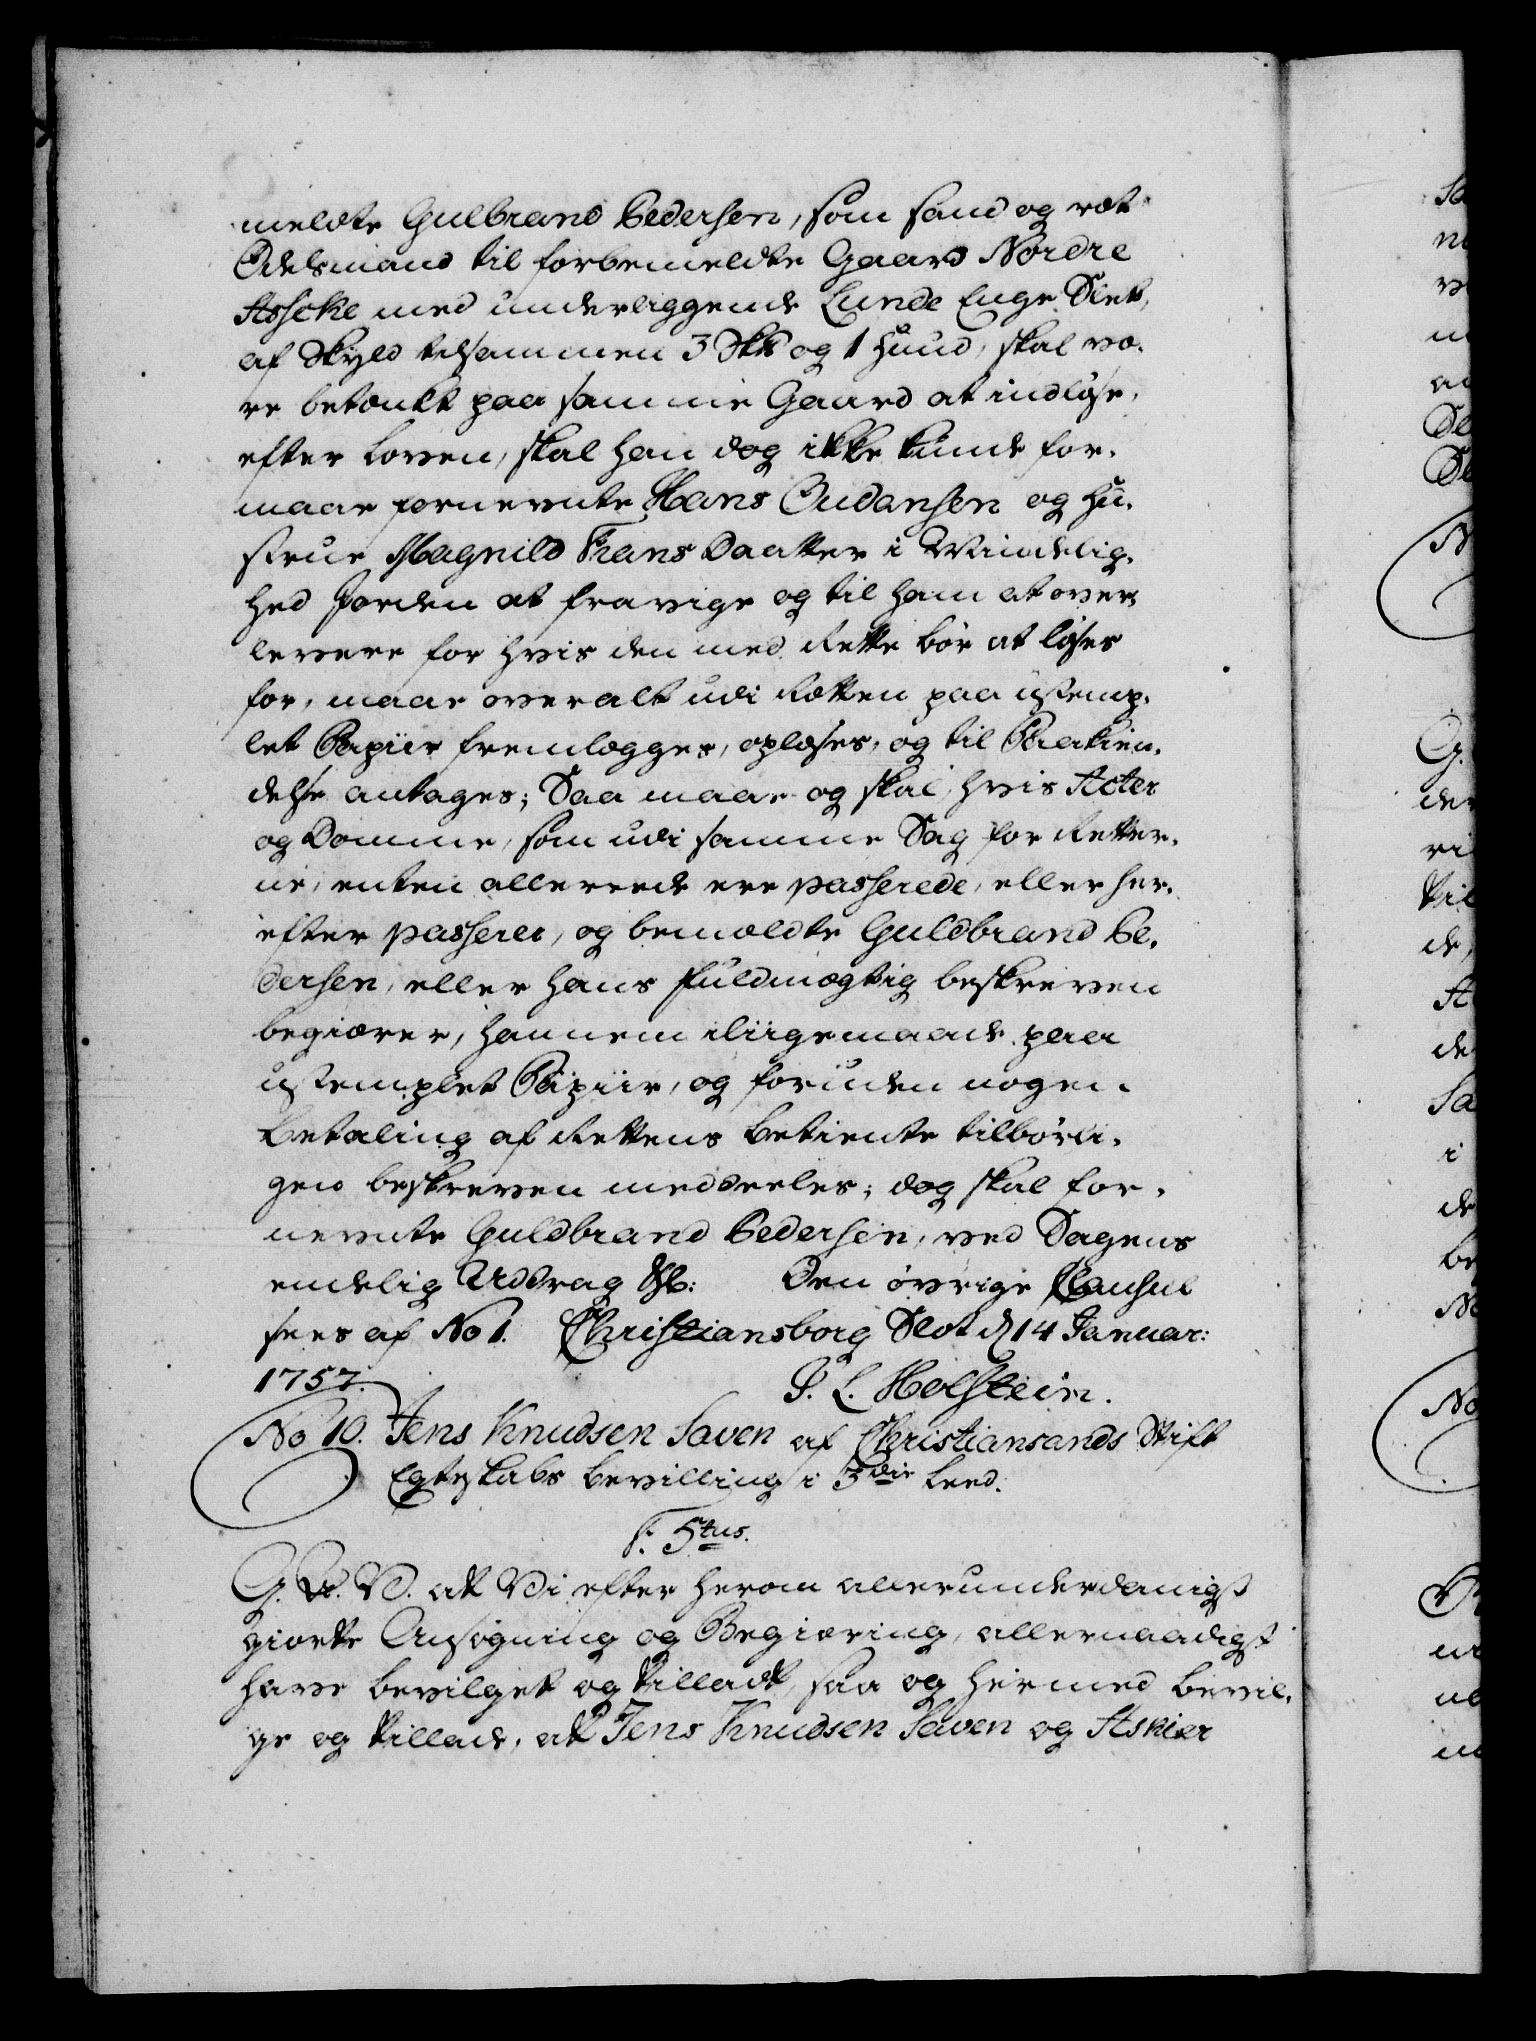 meldte Gulbrand Pedersen, som sand og ræt
Odelsmand til forbemeldte Gaard Nordre
Asseke med underliggende Lunde Enge Slet,
af Skyld tilsammen 3 Skt og 1 Huud, skal væ-
re betænkt paa samme Gaard at indløse,
efter Loven, skal han dog ikke kunde for-
maae fornevnte Hans Oudansen og Hu-
strue Magnild Frans Daatter i Mindelig-
hed Jorden at fravige og til ham at over-
levere for hvis den med Rette bør at løses
for, maae overalt udi Retten paa ustemp-
let Papiir fremlægges, oplæses, og til Paakien-
delse antages; Saa maae og skal, hvis Acter
og Domme, som udi samme Sag for Retter-
ne, enten allereede ere passerede, eller her-
efter passerer, og bemeldte Guldbrand Pe-
dersen, eller hans Fuldmægtig beskreven
begiærer, hannem iliigemaade paa
ustemplet Papiir, og foruden nogen
Betaling af Rettens Betiente tilbørli-
gen beskreven meddeeles; dog skal for-
nevnte Guldbrand Pedersen, ved Sagens
endelig Uddrag &c: Den øvrige Clausul
sees af No 1. Christiansborg Slot d 14 Januar:
1757.
J. L. Holstein.
No 10. Jens Knudsen Saven af Christiansands Stift
Egteskabs Bevilling i 3die Leed.
F. 5tus.
G. A. V. at Vi efter herom allerunderdanigst
giorte Ansøgning og Begiæring, allernaadigst
have bevilget og tilladt, saa og hermed bevil-
ge og tillade, at Jens Knudsen Saven og Askier